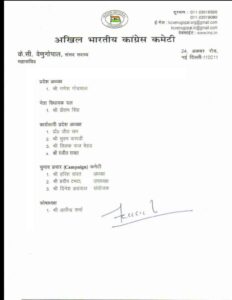 दूरभाष : 011-23019080
अखिल भारतीय कांग्रेस कमेटी
के.सी. वेणुगोपाल, संसद सदस्य
महासचिव
24, अकबर रोड,
नई दिल्ली-110011
प्रदेश अध्यक्ष
1. श्री गणेश गोदियाल
नेता विधायक दल
1. श्री प्रीतम सिंह
कार्यकारी प्रदेश अध्यक्ष
1. प्रो० जीत राम
2. श्री भुवन कापड़ी
3. श्री तिलक राज बेहड़
4. श्री रंजीत रावत
चुनाव प्रचार (Campaign) कमेटी
1. श्री हरीश रावत अध्यक्ष
2. श्री प्रदीप टम्टा उपाध्यक्ष
3. श्री दिनेश अग्रवाल संयोजक
कोषाध्यक्ष
1. श्री आर्येन्द्र शर्मा